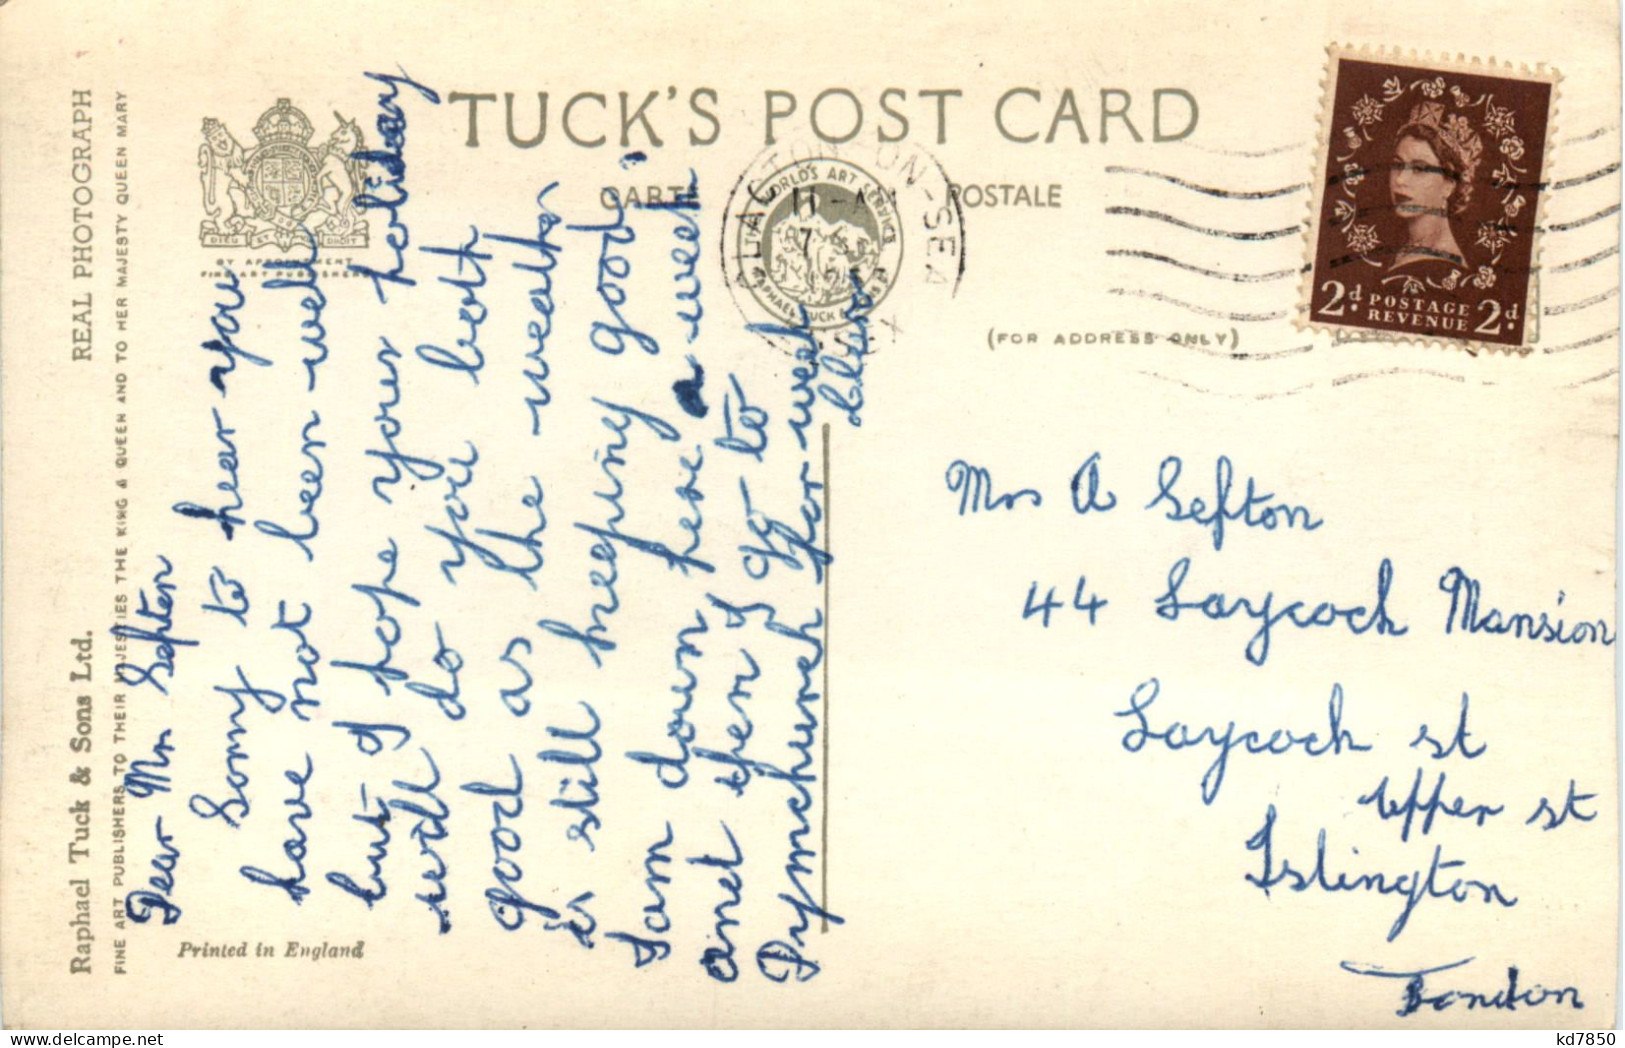 TUCK'S POST CARD
CARTE POSTALE
(FOR ADDRESS ONLY)
Raphael Tuck & Sons Ltd.
REAL PHOTOGRAPH
FINE ART PUBLISHERS TO THEIR MAJESTIES THE KING & QUEEN AND TO HER MAJESTY QUEEN MARY
DIEU ET MON DROIT
BY APPOINTMENT
FINE ART PUBLISHERS
Printed in England
THE WORLD'S ART SERVICE
RAPHAEL TUCK &
CLACTON-ON-SEA
11-A
7
ESSEX
2d POSTAGE REVENUE 2d
Dear Mrs Sefton
Sorry to hear you
have not been well
but I hope your holiday
will do you both
good as the weather
is still keeping good
I am down here a week
and then I go to
Dymchurch for week
Clara
Mrs A Sefton
44 Laycock Mansion
Laycock st
Upper st
Islington
London
kd7850